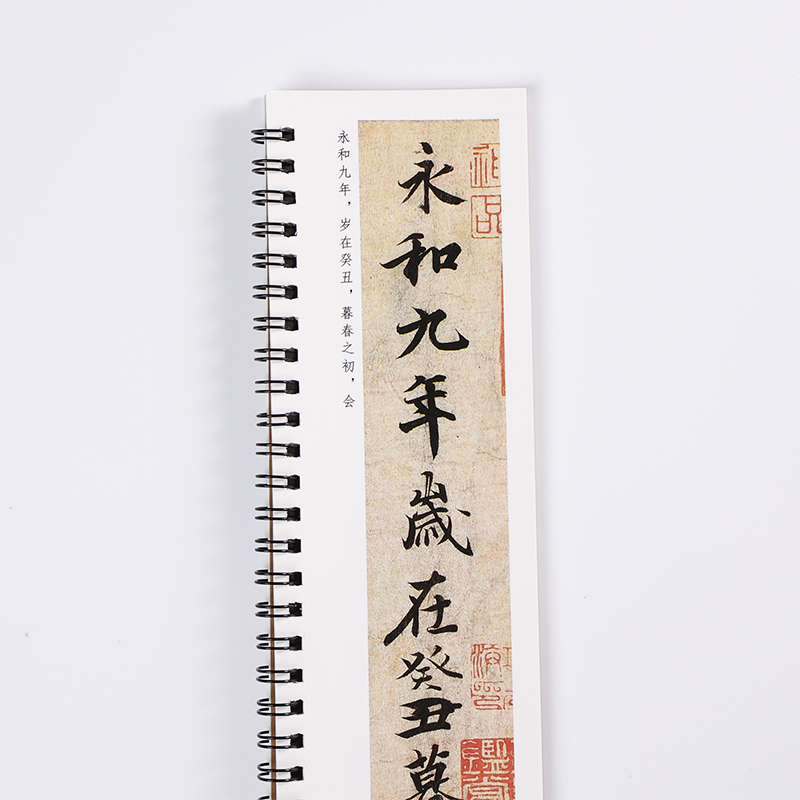 永和九年歲在癸丑暮
永和九年，岁在癸丑，暮春之初，会